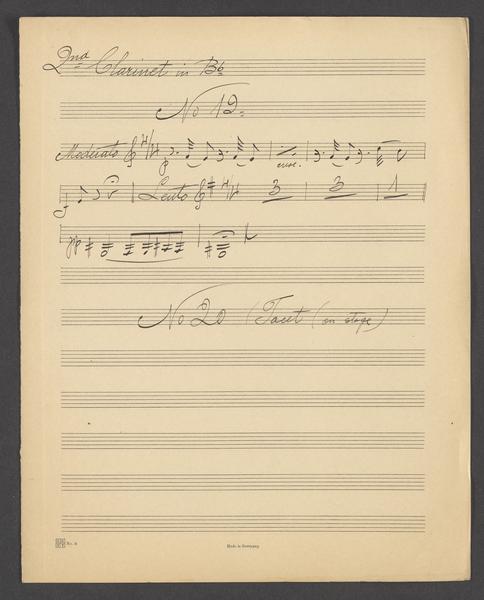 2nd Clarinet in Bb
No 19.
Moderato p cresc.
f Lento 3 3 1
pp
No 20 (Tacet (on stage)
No. 6 Made in Germany